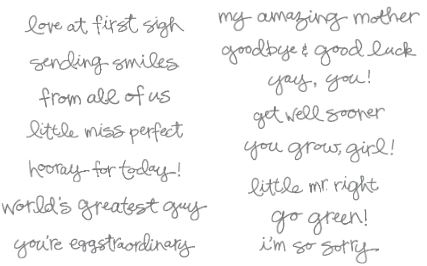 love at first sigh
sending smiles
from all of us
little miss perfect
hooray for today!
world's greatest guy
you're eggstraordinary
my amazing mother
goodbye & good luck
yay, you!
get well sooner
you grow, girl!
little mr. right
go green!
i'm so sorry